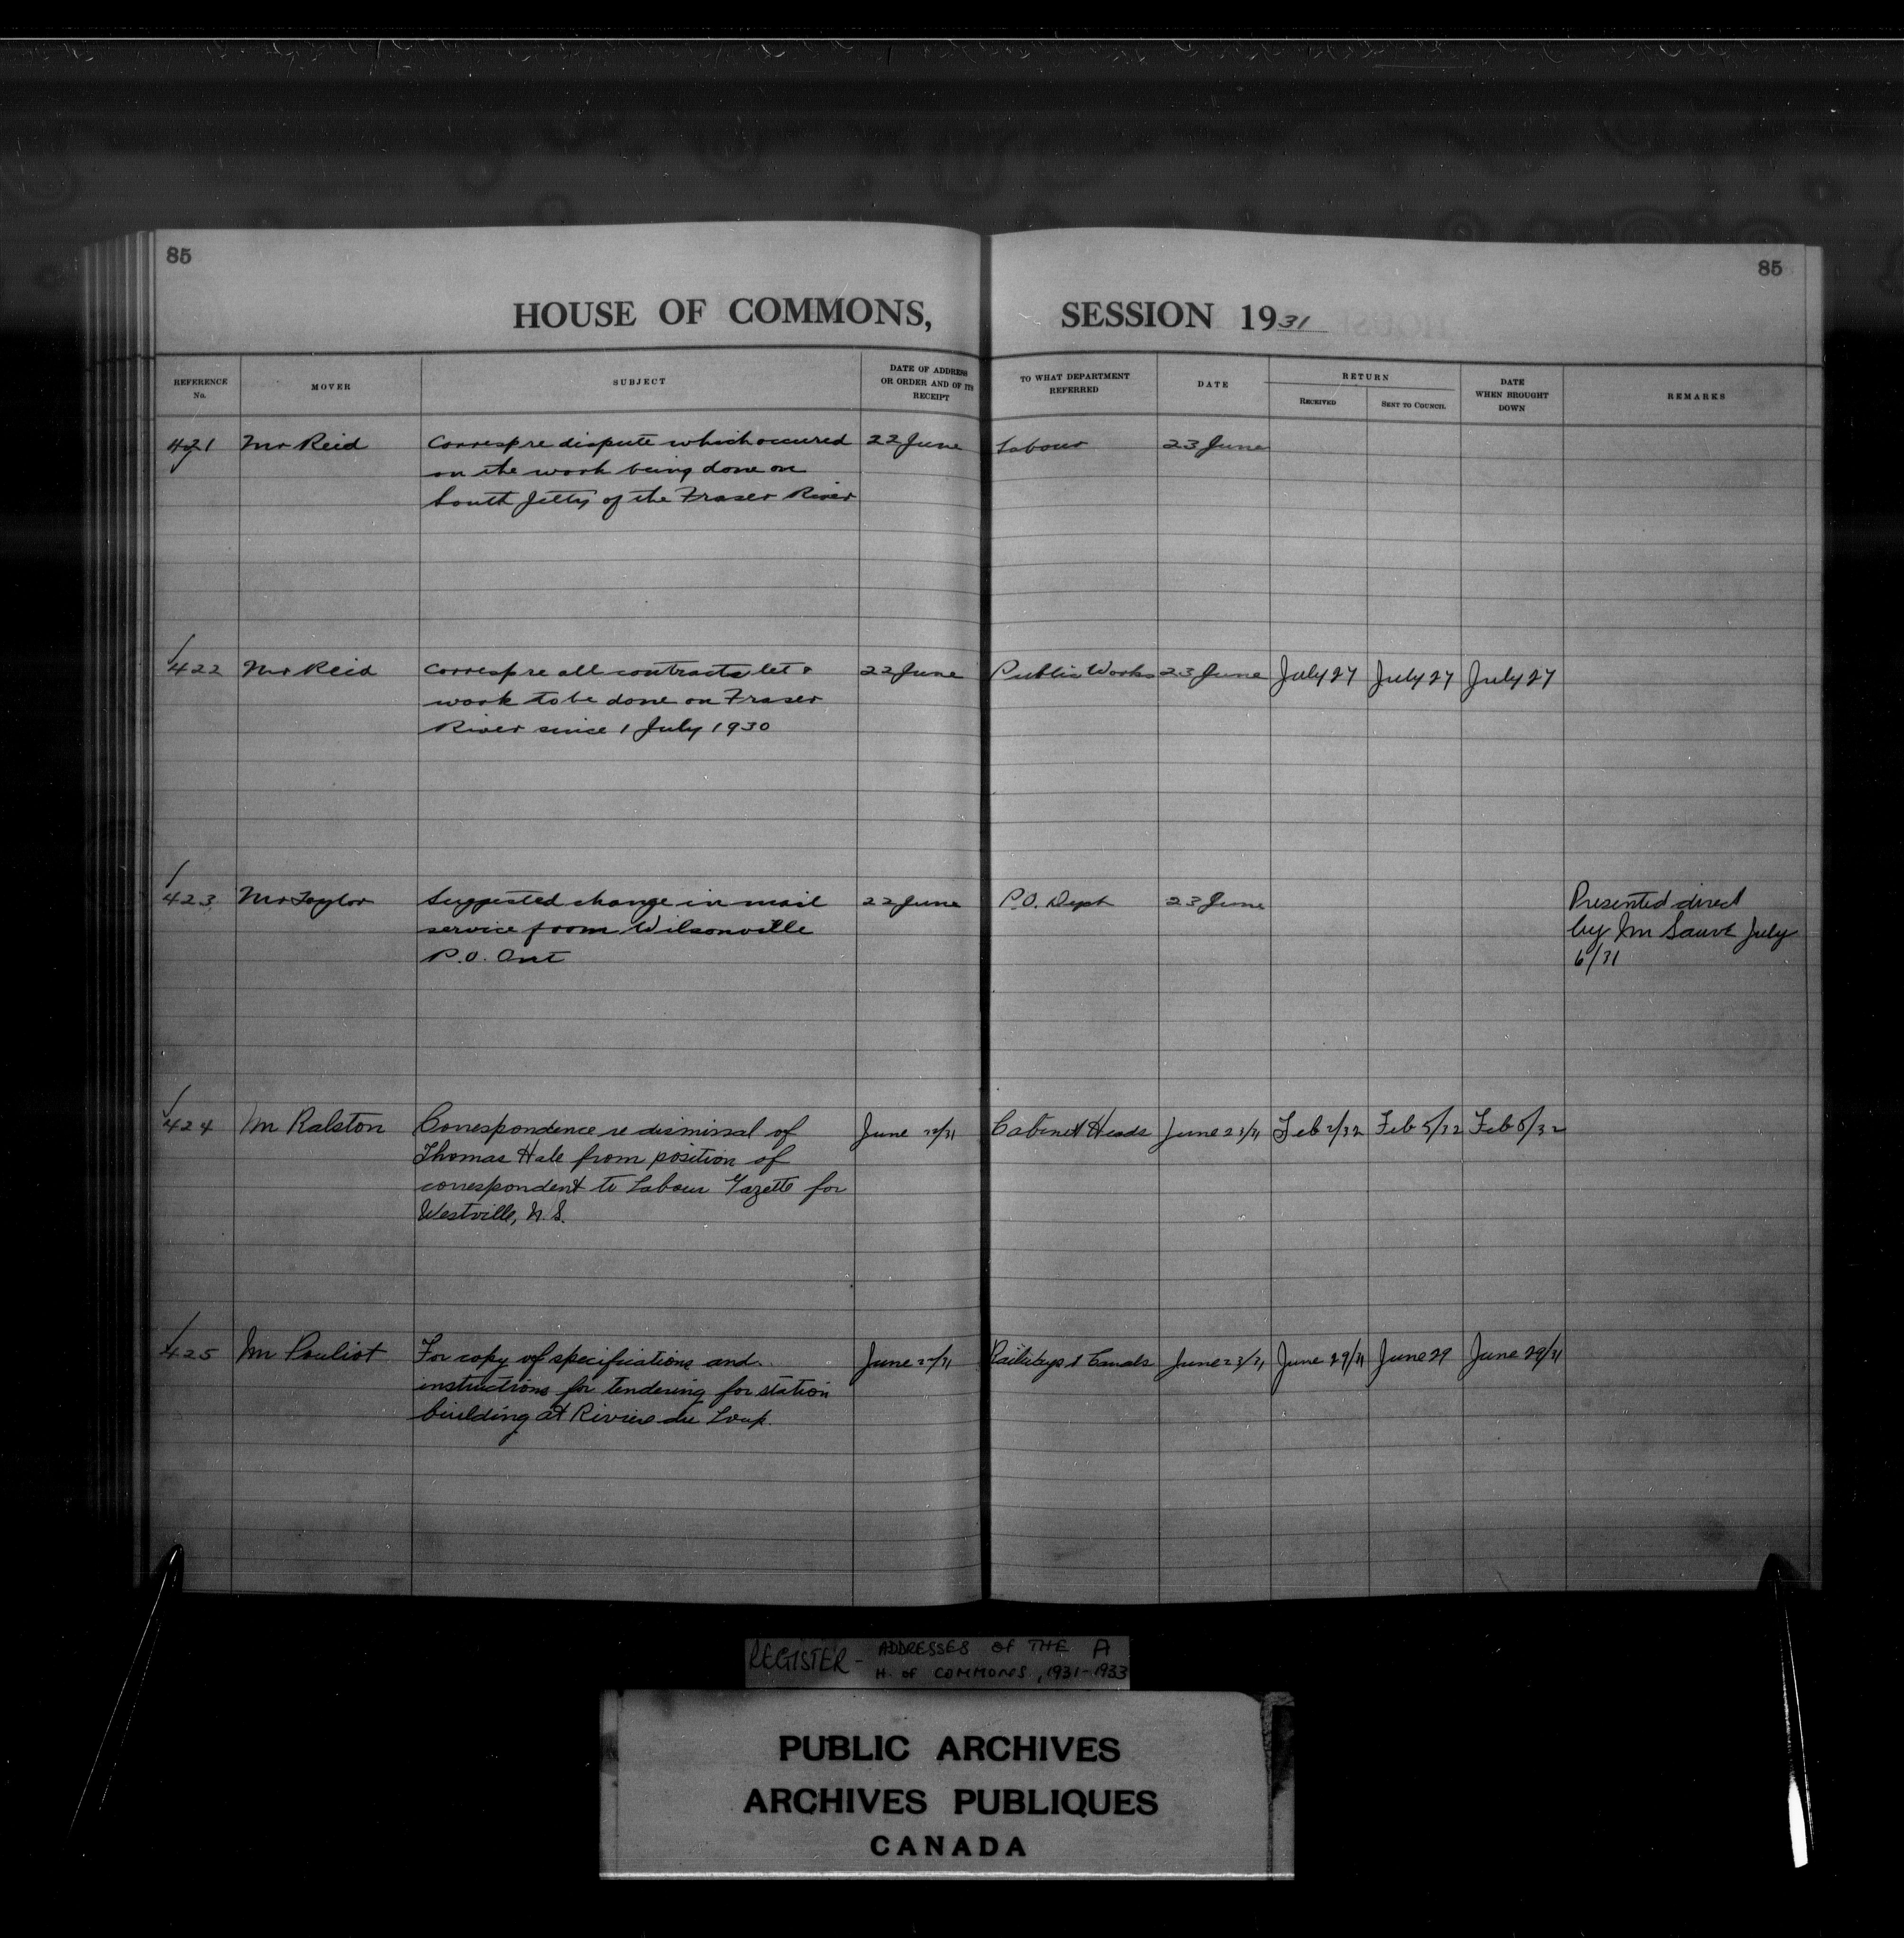 85
85
HOUSE OF COMMONS, SESSION 1931
REFERENCE No.
MOVER
SUBJECT
DATE OF ADDRESS OR ORDER AND OF ITS RECEIPT
TO WHAT DEPARTMENT REFERRED
DATE
RETURN
RECEIVED
SENT TO COUNCIL
DATE WHEN BROUGHT DOWN
REMARKS
421 Mr Reid Corresp re dispute which occured 22 June Labour 23 June
on the work being done on
South Jetty of the Fraser River
422 Mr Reid Corresp re all contracts let & 22 June Public Works 23 June July 27 July 27 July 27
work to be done on Fraser
River since 1 July 1930
423 Mr Taylor Suggested change in mail 22 June P.O. Dept 23 June Presented direct
service from Wilsonville by Mr Sauvé July
P.O. Ont 6/31
424 Mr Ralston Correspondence re dismissal of June 22/31 Cabinet Heads June 23/31 Feb 2/32 Feb 5/32 Feb 5/32
Thomas Hale from position of
correspondent to Labour Gazette for
Westville, N.S.
425 Mr Pouliot For copy of specifications and June 22/31 Railways & Canals June 23/31 June 29/31 June 29 June 29/31
instructions for tendering for station
building at Riviere du Loup.
REGISTER - ADDRESSES OF THE A
H. OF COMMONS, 1931-1933
PUBLIC ARCHIVES
ARCHIVES PUBLIQUES
CANADA